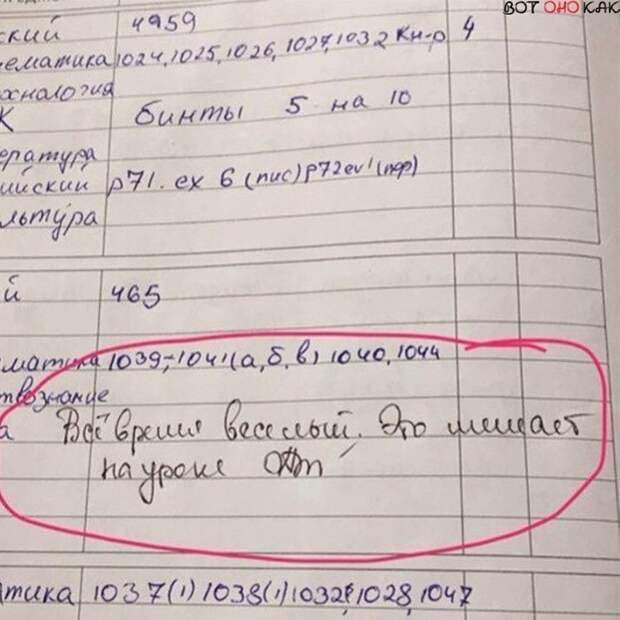 ВОТ ОНО КАК
ский 4959
ематика 1024, 1025, 1026, 1027, 1032 Кн-р 4
хналогия
К бинты 5 на 10
ература
ийский р71. ex 6 (пис) р72 ex 1 (пер)
льтура
й 465
матика 1039, 1041 (а, б, в) 1040, 1044
твознание
а Всё время веселый. Это мешает
на уроке
тика 1037(1) 1038(1) 1032, 1028, 1047